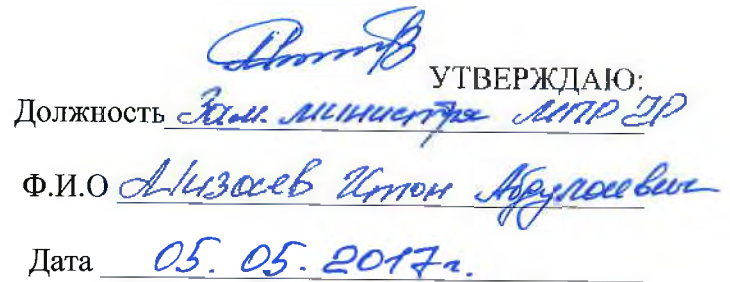 УТВЕРЖДАЮ:
Должность Зам. министра МПР ЧР
Ф.И.О Мизаев Илон Абдулаевич
Дата 05. 05. 2017г.